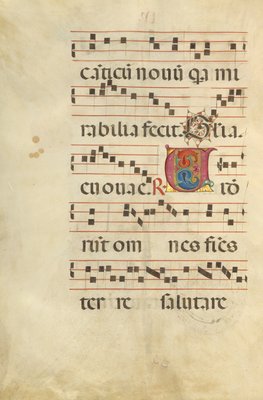 cāticū novū q̄a mi
rabilia fecit. Glīa.
euouae. R. Uide
rūt om nes fines
ter re salutare